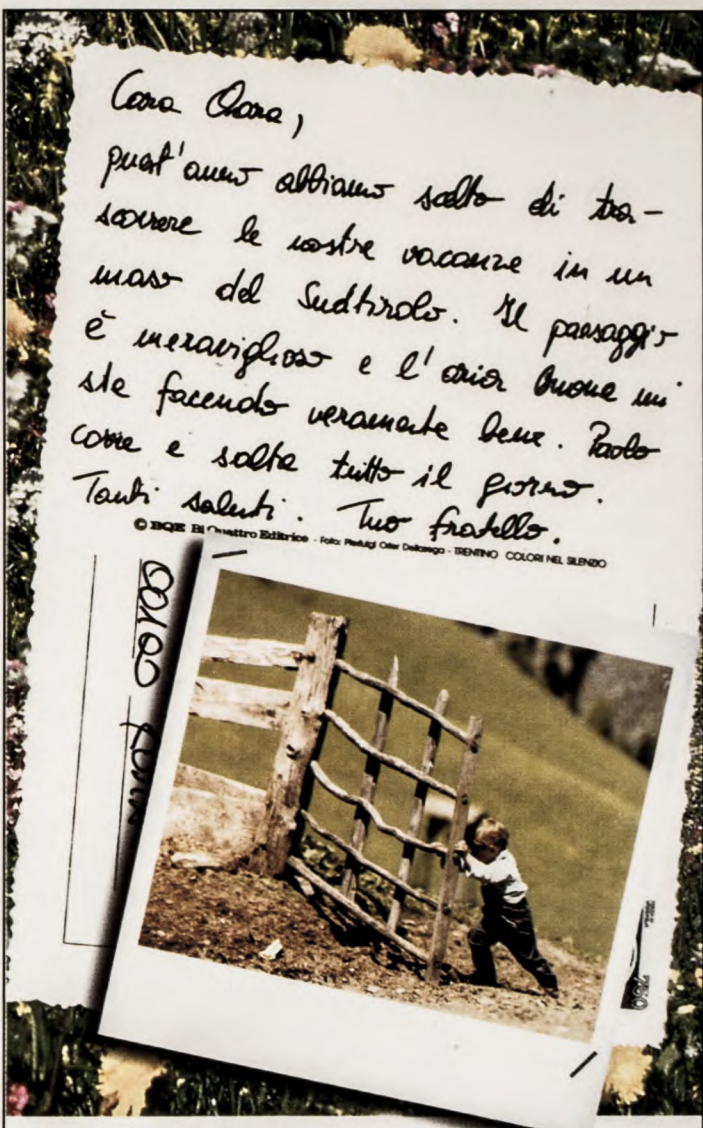 Cara Chiara,
quest'anno abbiamo scelto di tra-
scorrere le nostre vacanze in un
maso del Sudtirolo. Il paesaggio
è meraviglioso e l'aria buona mi
sta facendo veramente bene. Paolo
corre e salta tutto il giorno.
Tanti saluti. Tuo fratello.
© BQE BiQuattro Editrice - Foto: Pierluigi Orler Dellasega - TRENTINO COLORI NEL SILENZIO
750